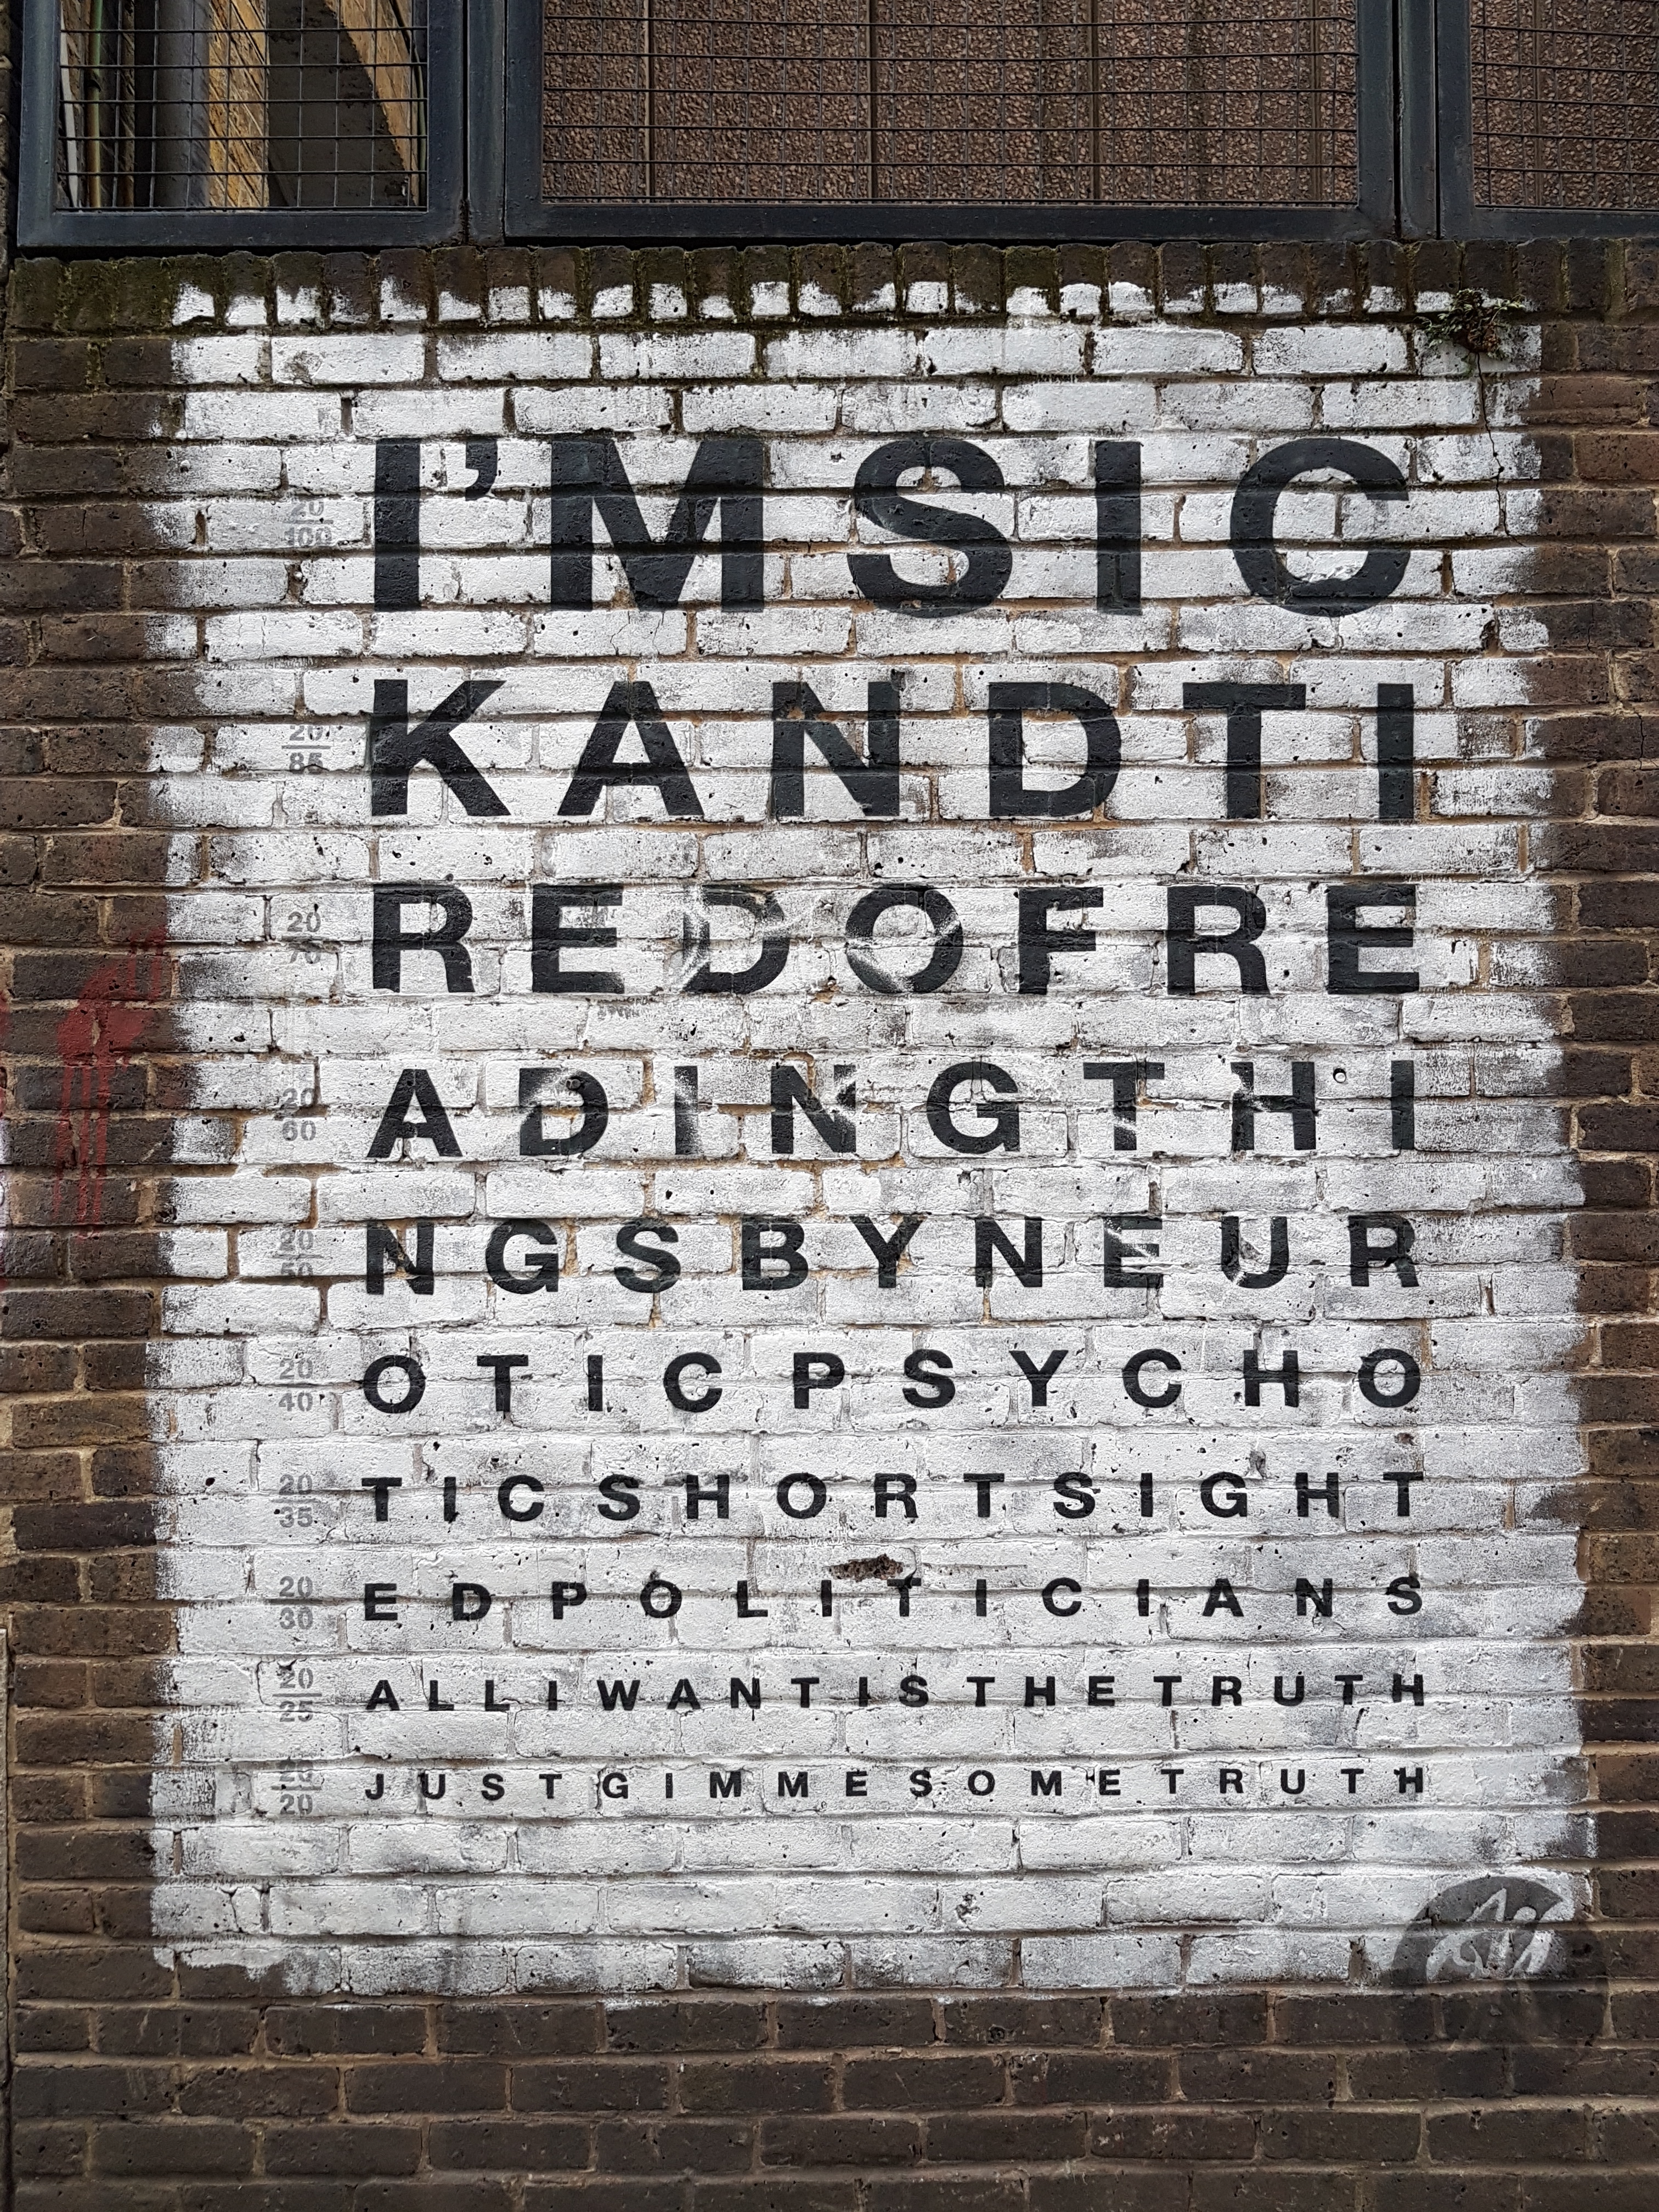 I'MSIC
20
100
KANDTI
20
85
REDOFRE
20
70
ADINGTHI
20
60
NGSBYNEUR
20
50
OTICPSYCHO
20
40
TICSHORTSIGHT
20
35
EDPOLITICIANS
20
30
ALLIWANTISTHETRUTH
20
25
JUSTGIMMESOMETRUTH
20